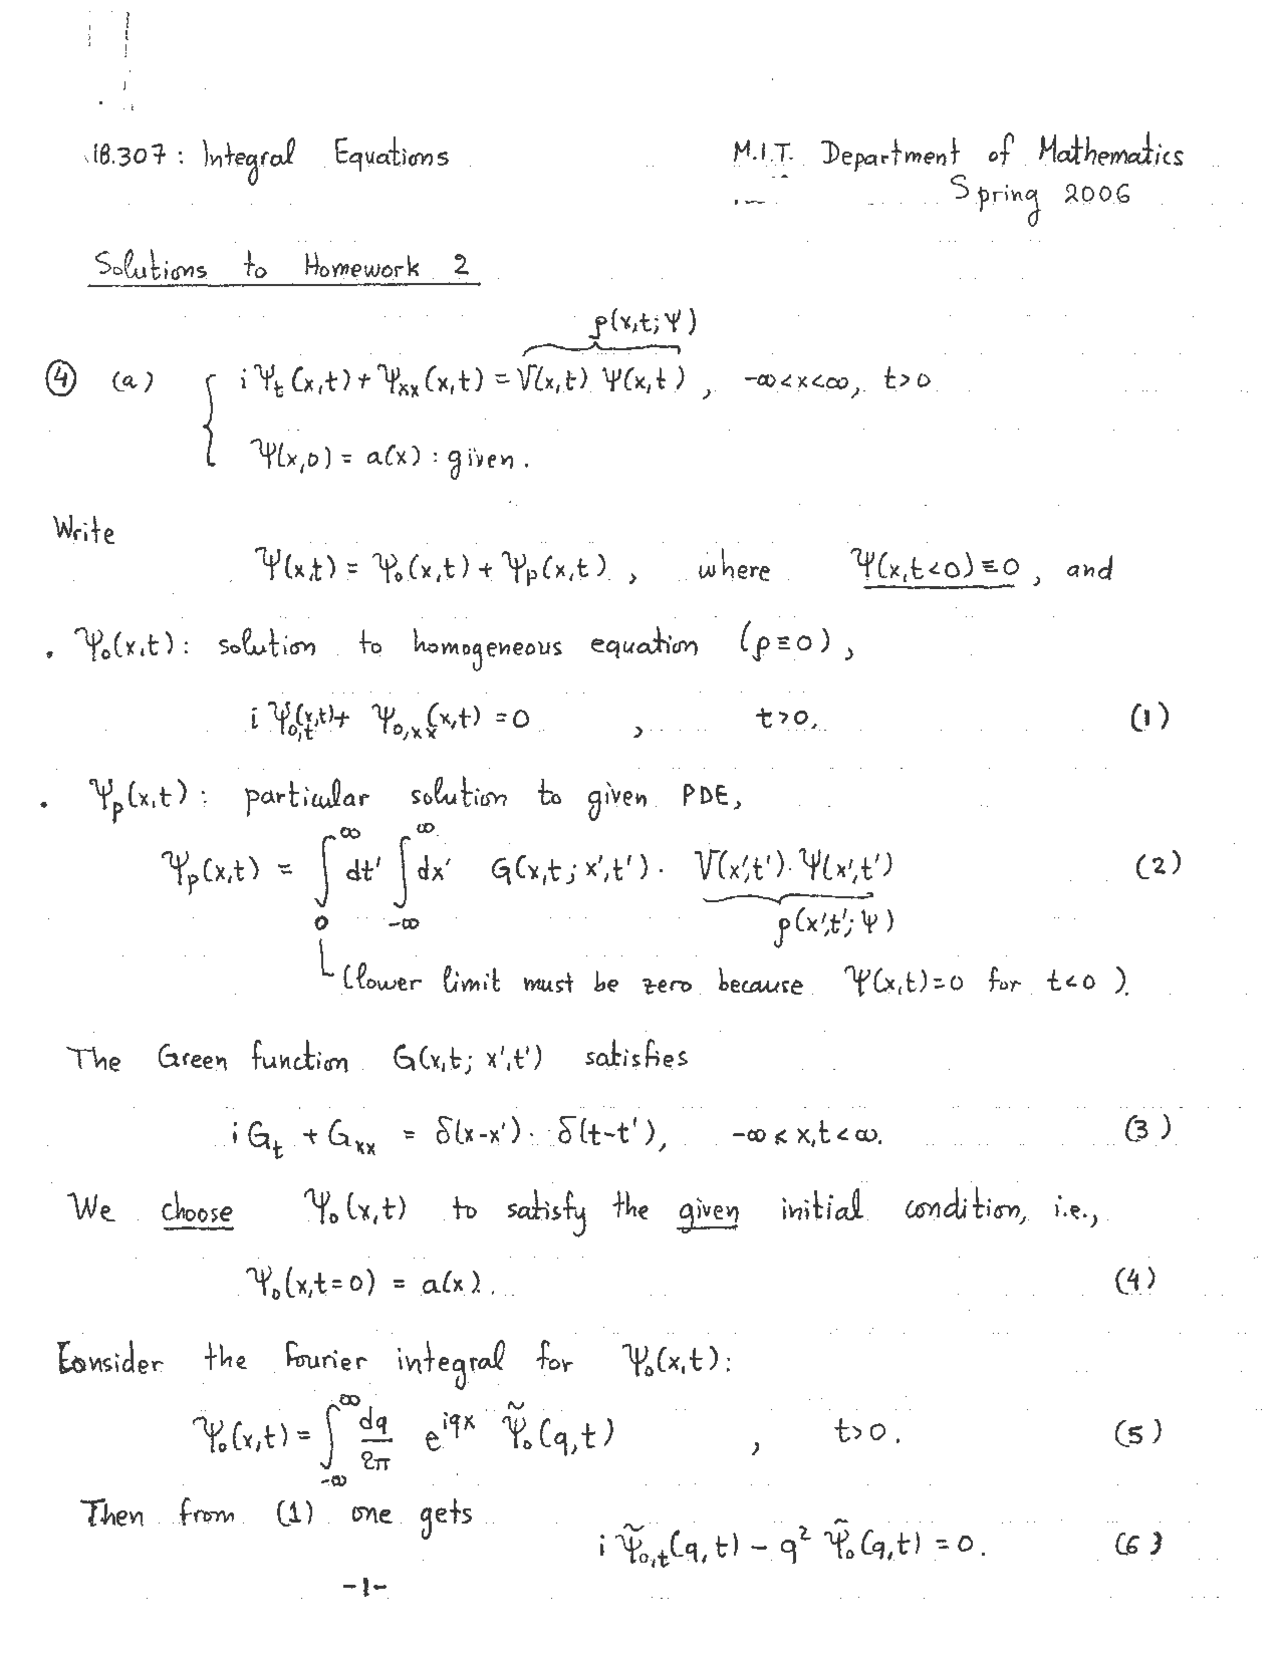 18.307: Integral Equations
M.I.T. Department of Mathematics
Spring 2006
Solutions to Homework 2
ρ(x,t;Ψ)
④ (a) { iΨ_t(x,t) + Ψ_xx(x,t) = V(x,t) Ψ(x,t), -∞<x<∞, t>0
Ψ(x,0) = a(x) : given.
Write
Ψ(x,t) = Ψ_0(x,t) + Ψ_p(x,t), where Ψ(x,t<0)≡0, and
• Ψ_0(x,t): solution to homogeneous equation (ρ≡0),
iΨ_0,t(x,t) + Ψ_0,xx(x,t) = 0 , t>0. (1)
• Ψ_p(x,t): particular solution to given PDE,
Ψ_p(x,t) = ∫_0^∞ dt' ∫_-∞^∞ dx' G(x,t;x',t')· V(x',t')·Ψ(x',t') (2)
ρ(x',t';Ψ)
(lower limit must be zero because Ψ(x,t)=0 for t<0).
The Green function G(x,t; x',t') satisfies
iG_t + G_xx = δ(x-x')· δ(t-t'), -∞<x,t<∞. (3)
We choose Ψ_0(x,t) to satisfy the given initial condition, i.e.,
Ψ_0(x,t=0) = a(x). (4)
Consider the Fourier integral for Ψ_0(x,t):
Ψ_0(x,t) = ∫_-∞^∞ dq/2π e^iqx Ψ̃_0(q,t) , t>0. (5)
Then from (1) one gets
iΨ̃_0,t(q,t) - q² Ψ̃_0(q,t) = 0. (6)
-1-